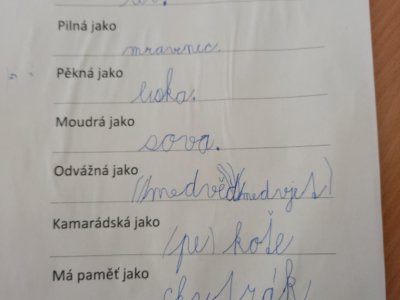 Pilná jako
mravnec.
Pěkná jako
liska.
Moudrá jako
sova.
Odvážná jako
(medvěd) medvjet)
Kamarádská jako
(pe) koše
Má paměť jako